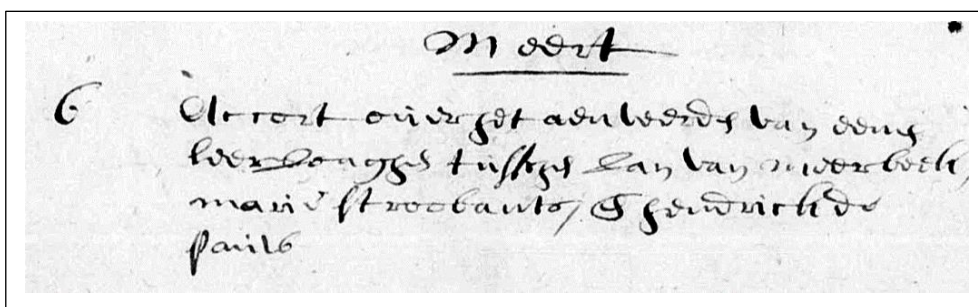 Meert
6 Accort over het aenveerden van eenen
leerjonghen tusschen Jan van Meerbeeck,
Marie Stroobants, & Hendrick de
Pauw